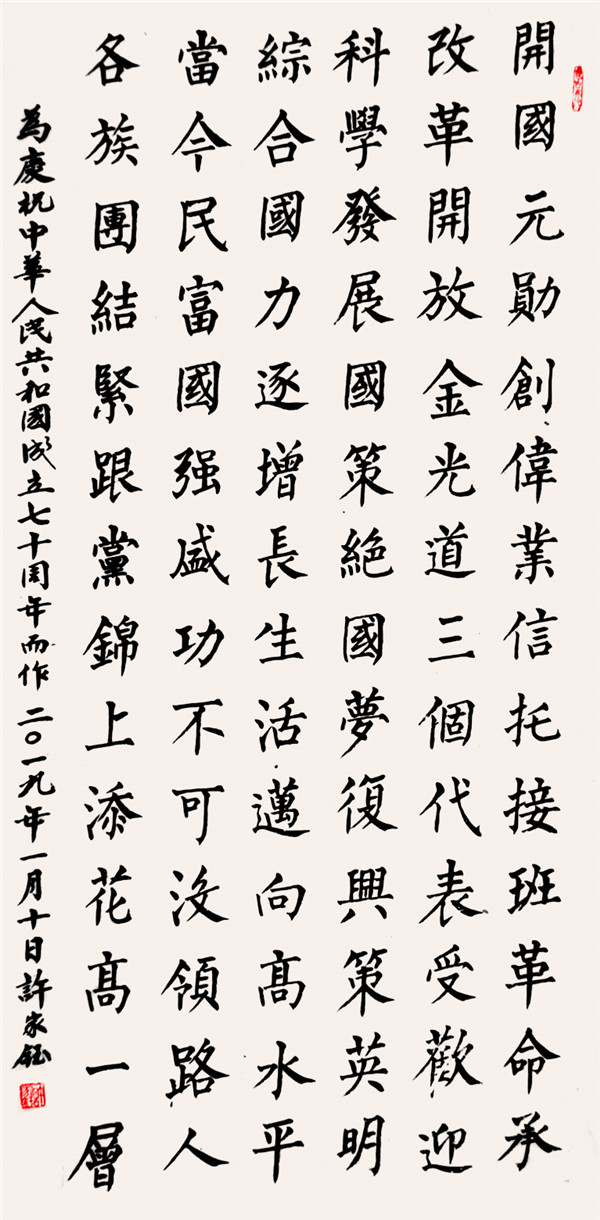 開國元勛創偉業信托接班革命承
改革開放金光道三個代表受歡迎
科學發展國策絕國夢復興策英明
綜合國力逐增長生活邁向高水平
當今民富國强盛功不可没領路人
各族團結緊跟黨錦上添花高一層
為慶祝中華人民共和國成立七十周年而作 二〇一九年一月十日許家鈺